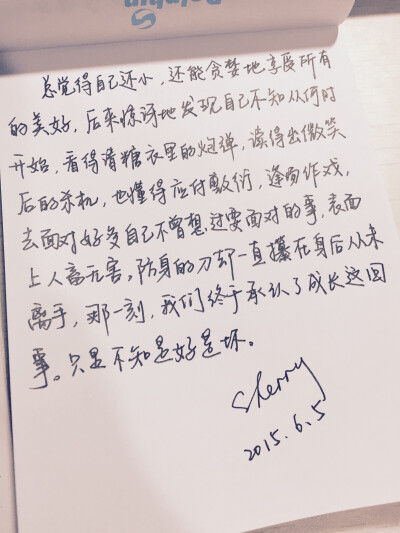 总觉得自己还小，还能贪婪地享受所有
的美好，后来惊讶地发现自己不知从何时
开始，看得清糖衣里的炮弹，读得出微笑
后的杀机，也懂得应付敷衍，逢场作戏，
去面对好多自己不曾想过要面对的事，表面
上人畜无害，防身的刀却一直攥在身后从未
离手，那一刻，我们终于承认了成长这回
事。只是不知是好是坏。
Sherry
2015.6.5